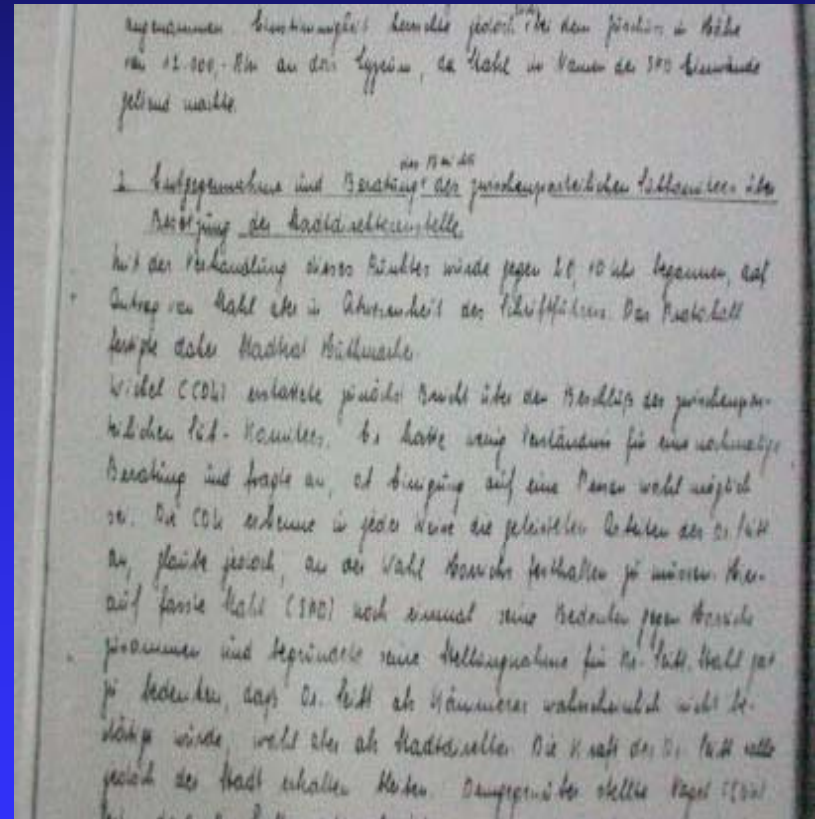 angenommen. Einstimmigkeit herrschte jedoch bei dem Zuschuss in Höhe
von 12.000,- RM an das Lyzeum, da Stahl im Namen der SPD Einwände
geltend machte.
2. Entgegennahme und Beratung des Berichts des zwischenparteilichen über
Besetzung der Stadtdirektorenstelle.
Mit der Verhandlung dieses Punktes wurde gegen 20,10 Uhr begonnen, auf
Antrag von Stahl aber in Abwesenheit des Schriftführers. Das Protokoll
fertigte daher Stadtrat
(CDU) erstattete zunächst Bericht über den Beschluß des zwischenpar-
teilichen Komitees. Er hatte wenig Verständnis für eine nochmalige
Beratung und fragte an, ob Einigung auf eine Person wohl möglich
sei. Die CDU erkenne in jeder Weise die geleisteten Arbeiten des Dr.
an, glaube jedoch, an der Wahl festhalten zu müssen. Hier-
auf fasste Stahl (SPD) noch einmal seine Bedenken gegen
zusammen und begründete seine Stellungnahme für Dr. Stahl gab
zu bedenken, daß Dr. als Kämmerer wahrscheinlich nicht be-
stätigt würde, wohl aber als Stadtdirektor. Die Kraft des Dr. solle
jedoch der Stadt erhalten bleiben. Demgegenüber stellte Vogel (CDU)